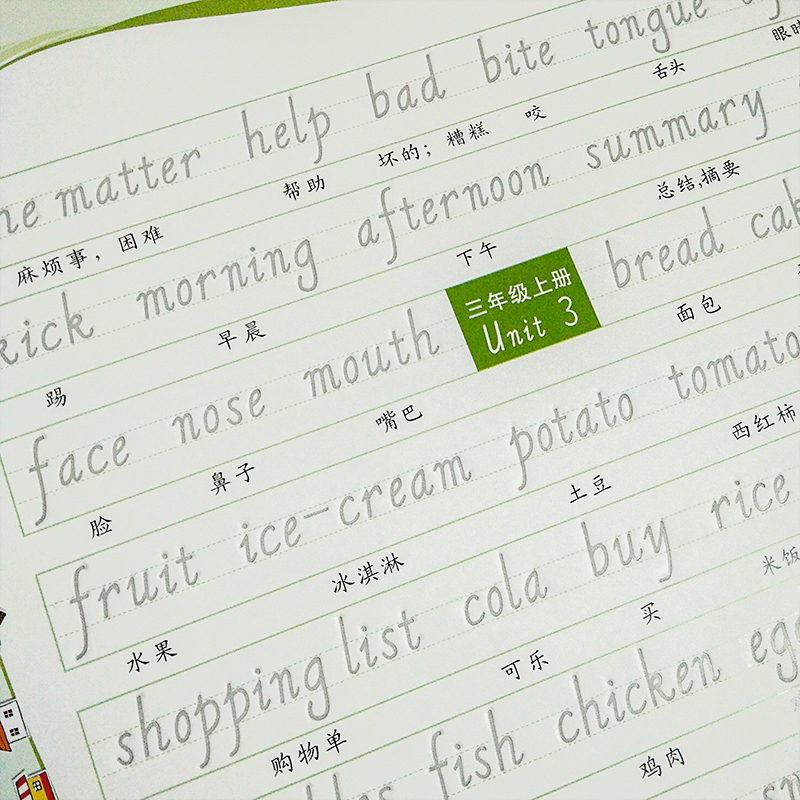 he matter help bad bite tongue
麻烦事，困难 帮助 坏的；糟糕 咬 舌头
kick morning afternoon summary
踢 早晨 下午 总结,摘要
face nose mouth 三年级上册 Unit 3 bread
脸 鼻子 嘴巴 面包
fruit ice-cream potato tomato
水果 冰淇淋 土豆 西红柿
shopping list cola buy rice
购物单 可乐 买 米饭
fish chicken
鸡肉